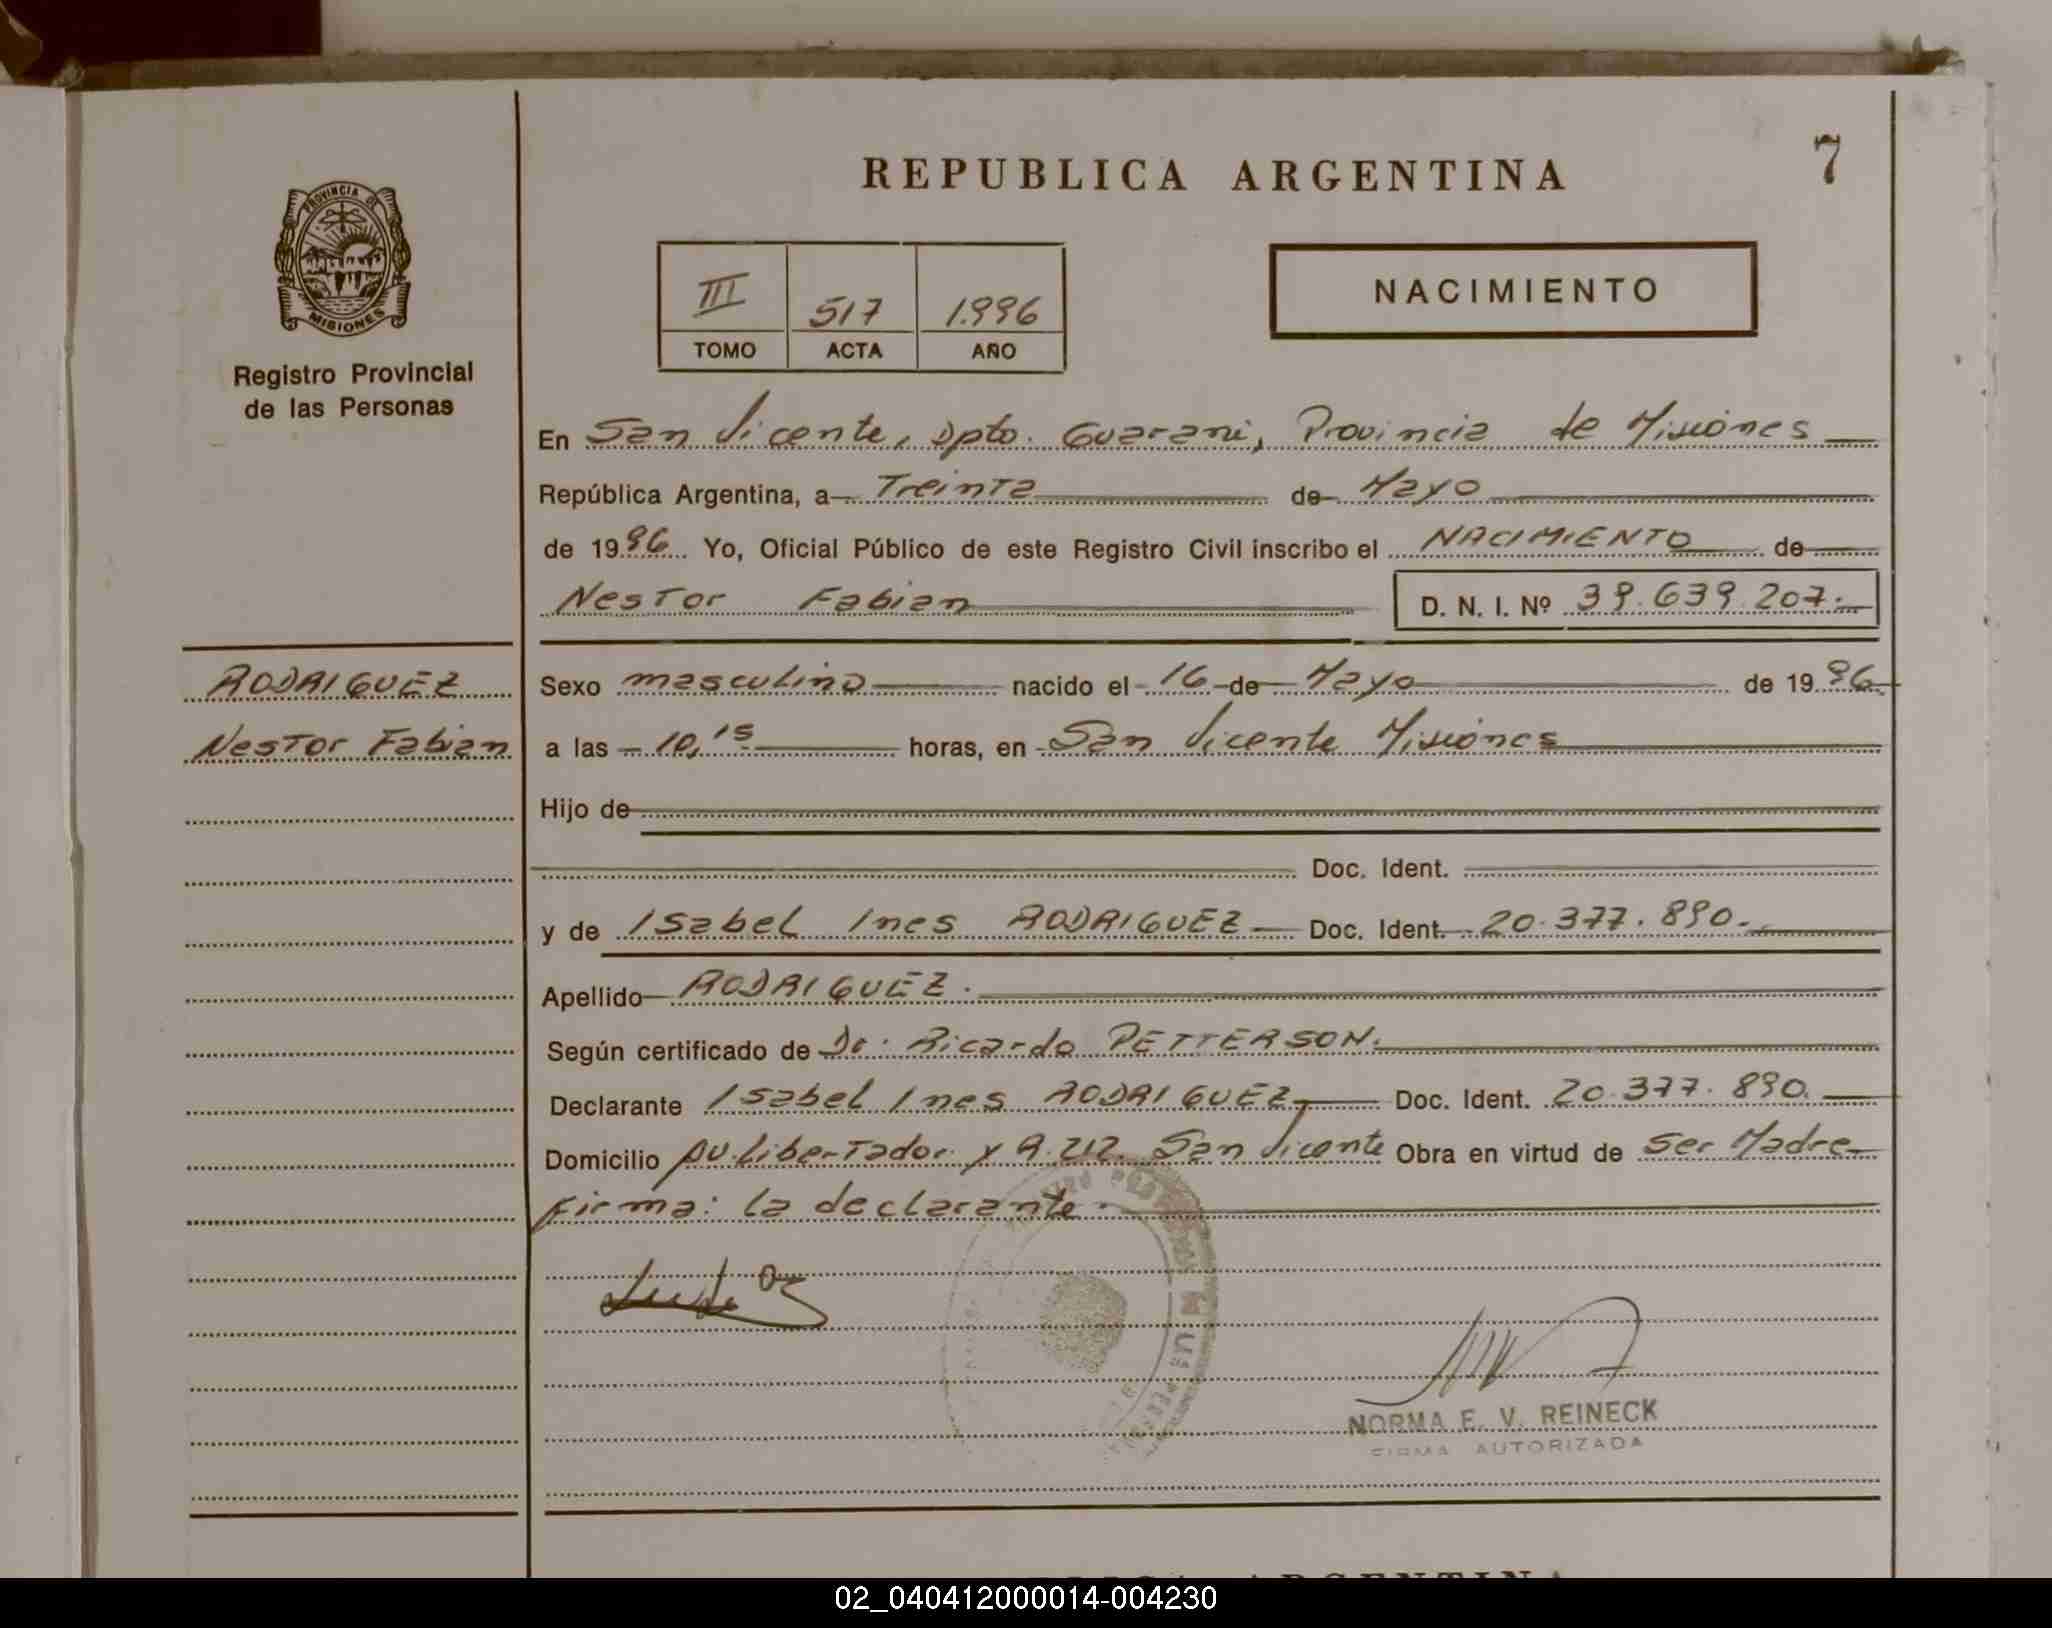 REPUBLICA ARGENTINA
7
PROVINCIA DE
MISIONES
Registro Provincial
de las Personas
III 517 1.996
TOMO ACTA AÑO
NACIMIENTO
En San Vicente, Dpto. Guarani, Provincia de Misiones
República Argentina, a Treinta de Mayo
de 1996 Yo, Oficial Público de este Registro Civil inscribo el NACIMIENTO de
Nestor Fabian D. N. I. Nº 39.639.207.
RODRIGUEZ
Nestor Fabian
Sexo masculino nacido el 16 de Mayo de 1996
a las 10,15 horas, en San Vicente Misiones
Hijo de
Doc. Ident.
y de Isabel Ines RODRIGUEZ Doc. Ident. 20.377.890.
Apellido RODRIGUEZ.
Según certificado de Dr. Ricardo PETTERSON.
Declarante Isabel Ines RODRIGUEZ Doc. Ident. 20.377.890.
Domicilio Av. Libertador y R. 212. San Vicente Obra en virtud de Ser Madre
Firma: la declarante.
NORMA E. V. REINECK
FIRMA AUTORIZADA
ARGENTINA
02_040412000014-004230